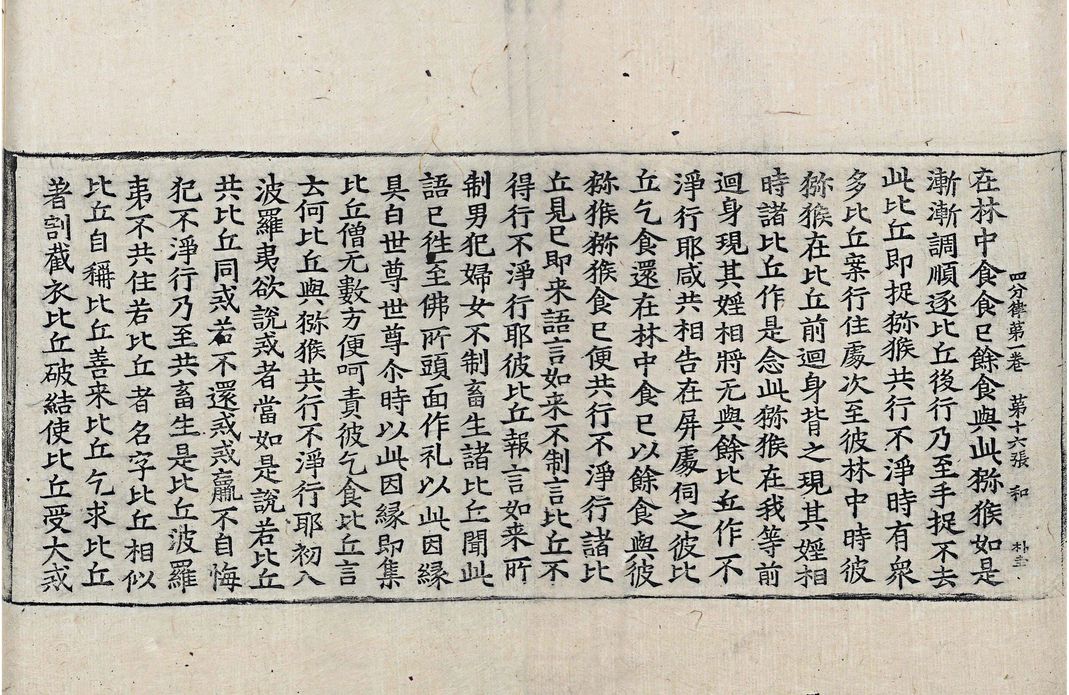 在林中食食已餘食與此猕猴如是
四分律第一卷 第十六張 和 朴圭
漸漸調順逐比丘後行乃至手捉不去
此比丘即捉猕猴共行不淨時有衆
多比丘案行住處次至彼林中時彼
猕猴在比丘前迴身背之現其婬相
時諸比丘作是念此猕猴在我等前
迴身現其婬相將无與餘比丘作不
淨行耶咸共相告在屏處伺之彼比
丘乞食還在林中食已以餘食與彼
猕猴猕猴食已便共行不淨行諸比
丘見已即来語言如来不制言比丘不
得行不淨行耶彼比丘報言如来所
制男犯婦女不制畜生諸比丘聞此
語已徃至佛所頭面作礼以此因緣
具白世尊世尊尒時以此因緣即集
比丘僧无數方便呵責彼乞食比丘言
云何比丘與猕猴共行不淨行耶初入
波羅夷欲說戒者當如是說若比丘
共比丘同戒若不還戒戒羸不自悔
犯不淨行乃至共畜生是比丘波羅
夷不共住若比丘者名字比丘相似
比丘自稱比丘善来比丘乞求比丘
著割截衣比丘破結使比丘受大戒